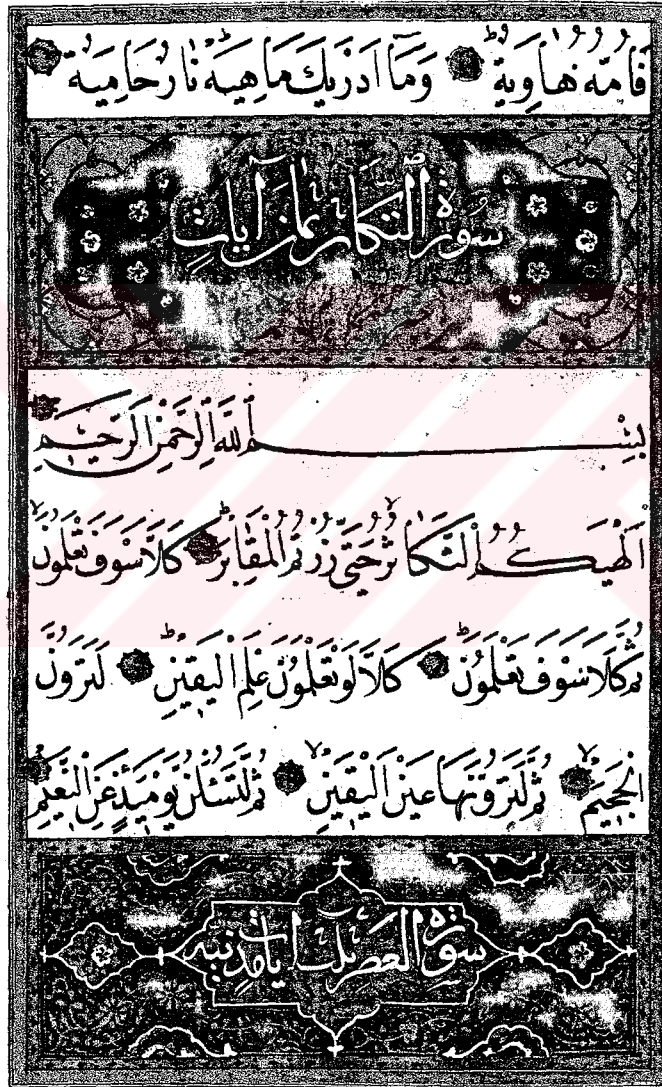 فَاُمُّهُ هَاوِيَةٌ وَمَا اَدْرٰيكَ مَاهِيَهْ نَارٌ حَامِيَةٌ
سورة التكاثر ثمان آيات
بِسْمِ اللّٰهِ الرَّحْمٰنِ الرَّحِيمِ
اَلْهٰيكُمُ التَّكَاثُرُ حَتّٰى زُرْتُمُ الْمَقَابِرَ كَلَّا سَوْفَ تَعْلَمُونَ
ثُمَّ كَلَّا سَوْفَ تَعْلَمُونَ كَلَّا لَوْ تَعْلَمُونَ عِلْمَ الْيَقِينِ لَتَرَوُنَّ
الْجَحِيمَ ثُمَّ لَتَرَوُنَّهَا عَيْنَ الْيَقِينِ ثُمَّ لَتُسْـَٔلُنَّ يَوْمَئِذٍ عَنِ النَّعِيمِ
سورة العصر آيات